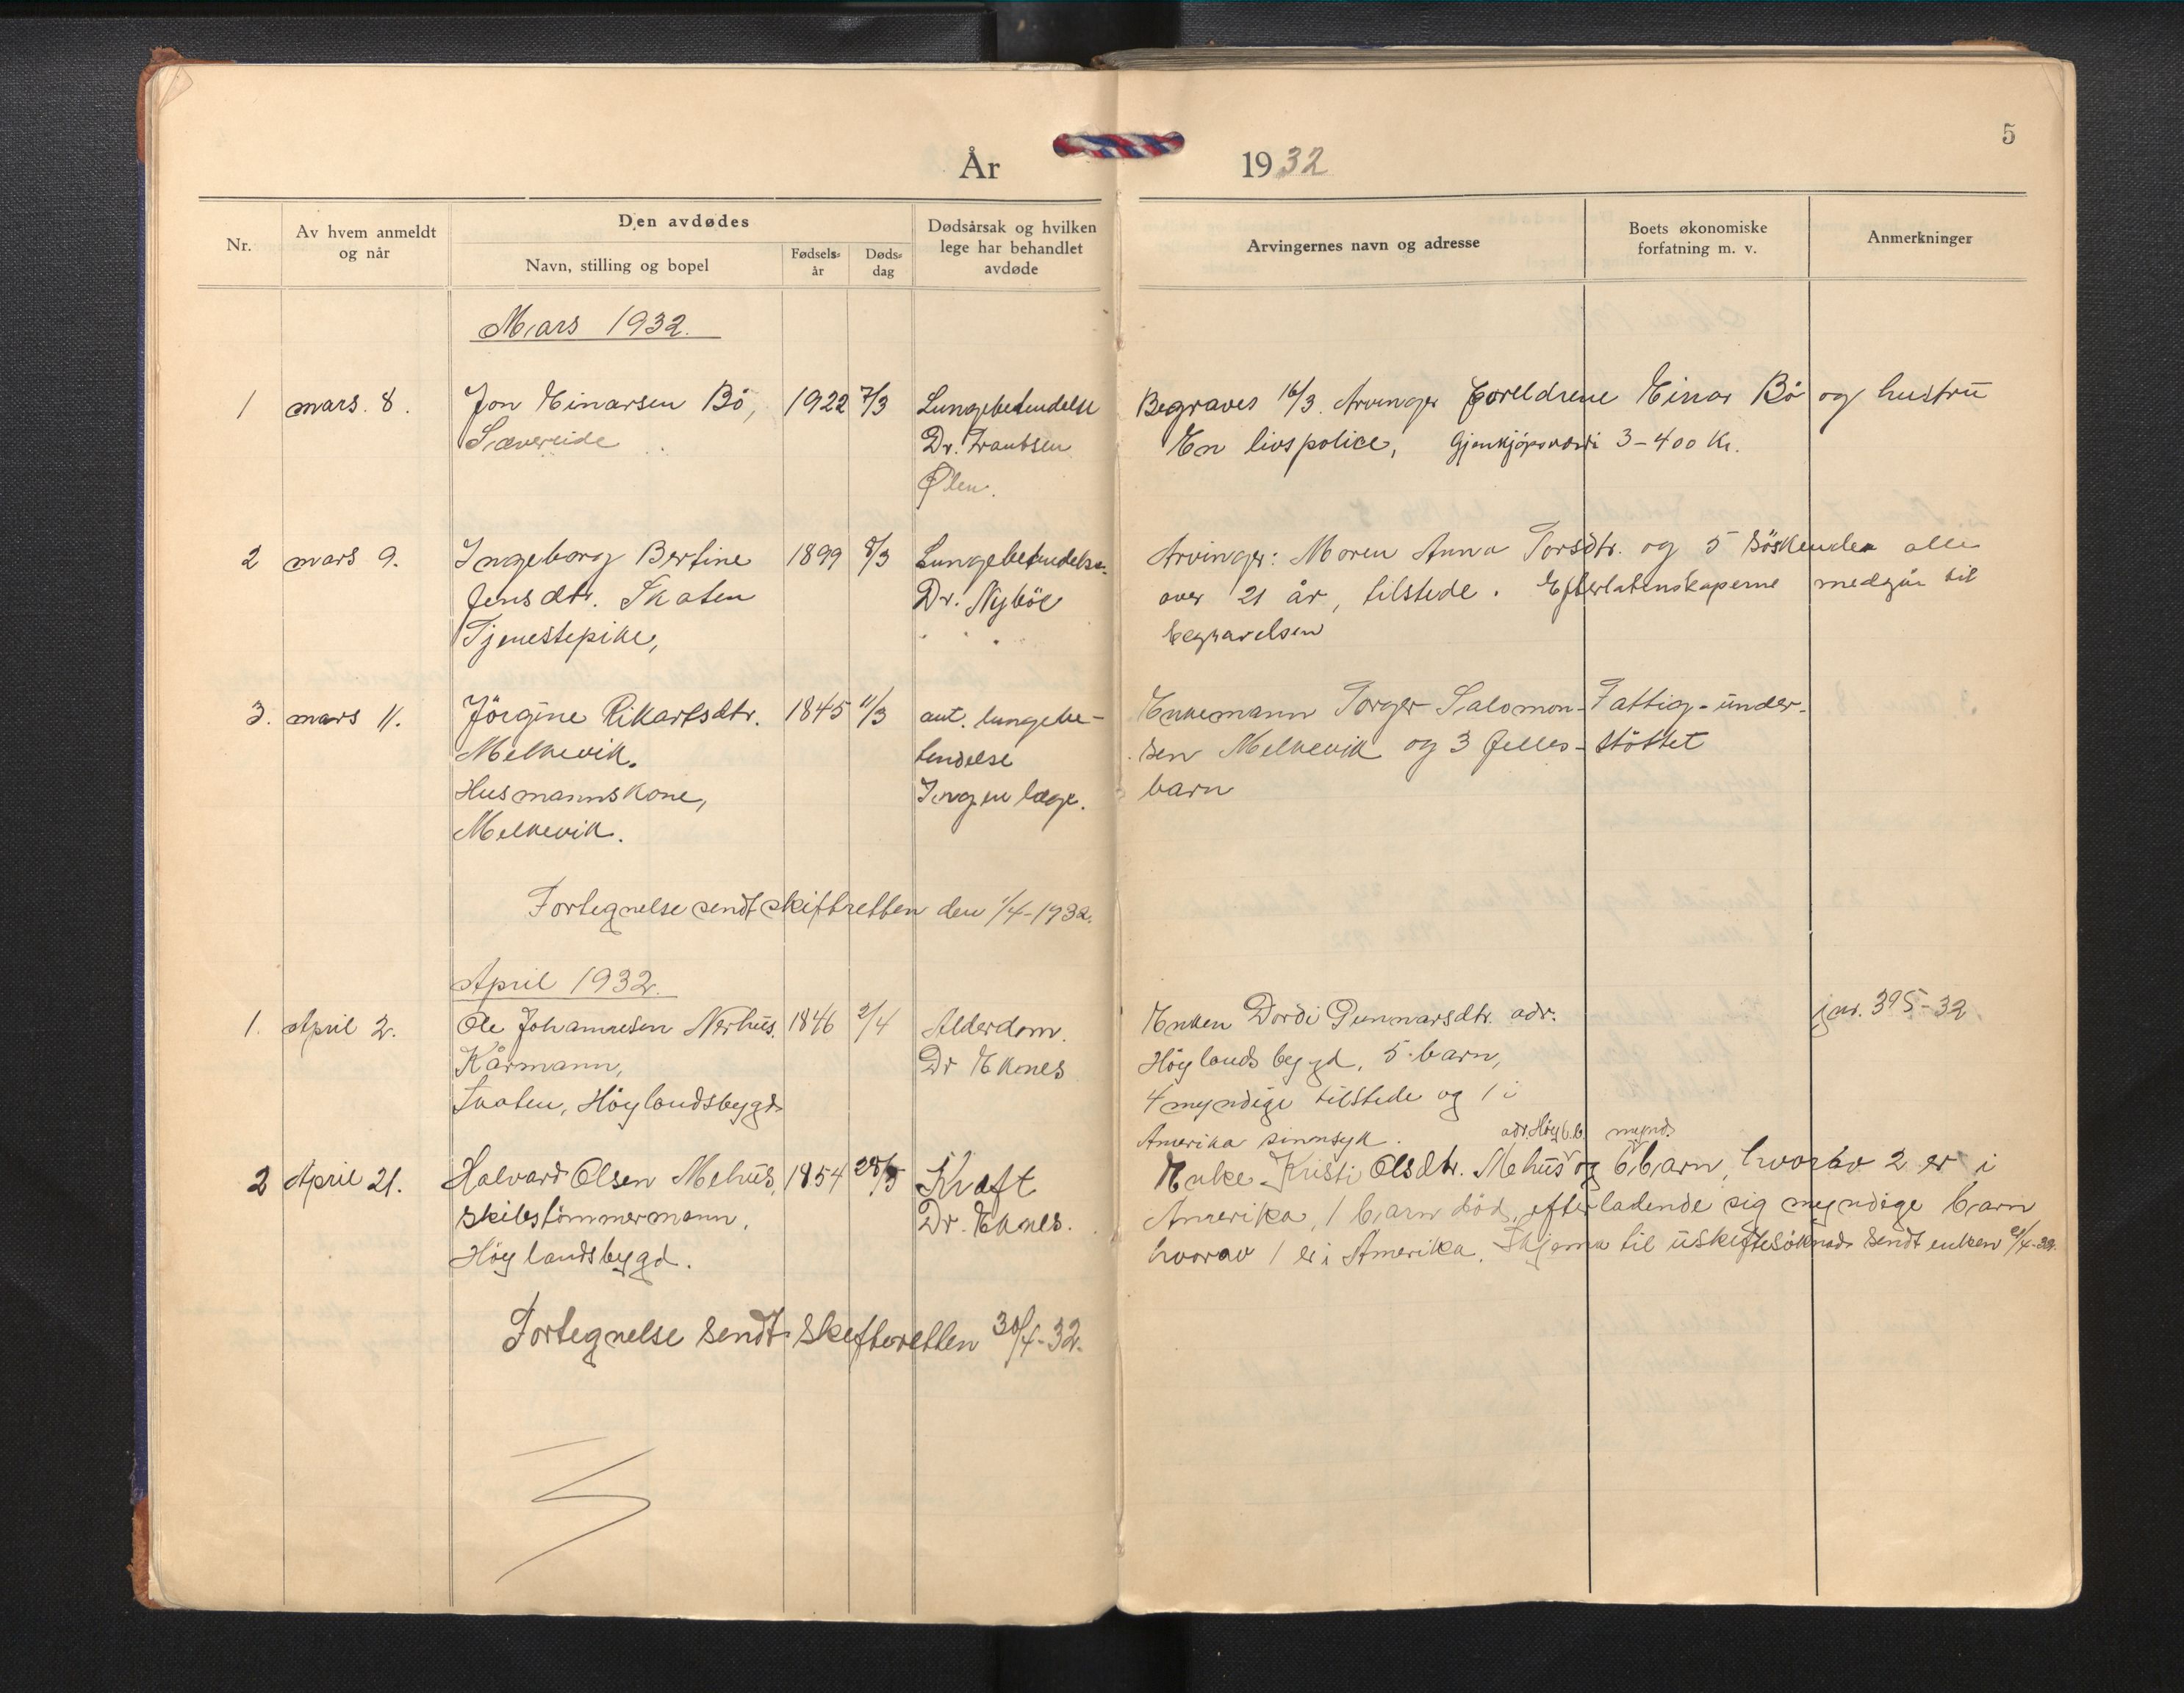 5
År 1932
Nr.
Av hvem anmeldt
og når
Den avdødes
Navn, stilling og bopel
Fødsels-
år
Døds-
dag
Dødsårsak og hvilken
lege har behandlet
avdøde
Arvingernes navn og adresse
Boets økonomiske
forfatning m. v.
Anmerkninger
Mars 1932.
1 mars. 8. Jon Einarsen Bö, 1922 7/3 Lungebetendelse Begraves 16/3. Arvinger Foreldrene Einar Bö og hustrü
Sævereide Dr. En livspolice, Gjenkjöpsverdi 3-400 Kr.
Ølen.
2 mars 9. Ingeborg Bertine 1899 8/3 Lungebetendelse. Arvinger: Moren Anna Torsdtr. og 5 Söskender alle
Jensdtr. Skaten Dr. Nyböe over 21 år, tilstede. Efterlatenskaperne medgår til
Tjenestepike, begravelsen
3. mars 11. Jörgine Rikartsdtr. 1845 11/3 aut. lungebe- Enkemann Torger Salomon- Fattig-under-
Melkevik. tendelse sen Melkevik og 3 felles- stöttet
Husmannskone, Ingen læge. barn
Melkevik.
Fortegnelse sendt skifteretten den 1/4-1932.
April 1932.
1. April 2. Ole Johannesen Nerhüs. 1846 2/4 Alderdom. Enken Dordi Gunnarsdtr. adr. jnr. 395-32
Kårmann, Dr Eknes Höylandsbygd, 5 barn,
Skaten, Höylandsbygd 4 myndige tilstede og 1 i
Amerika sinnsyk.
adr. Höyl.b. mynd.
2 April 21. Halvard Olsen Mehüs, 1854 28/3 Kreft Enke Kristi Olsdtr. Mehüs og 6 barn, hvorav 2 er i
Skibstömmermann, Dr. Eknes. Amerika, 1 barn död, efterladende sig myndige barn
Höylandsbygd. hvorav 1 er i Amerika. Skjema til üskiftesöknad sendt enken 21/4-32.
Fortegnelse sendt skifteretten 30/4-32.